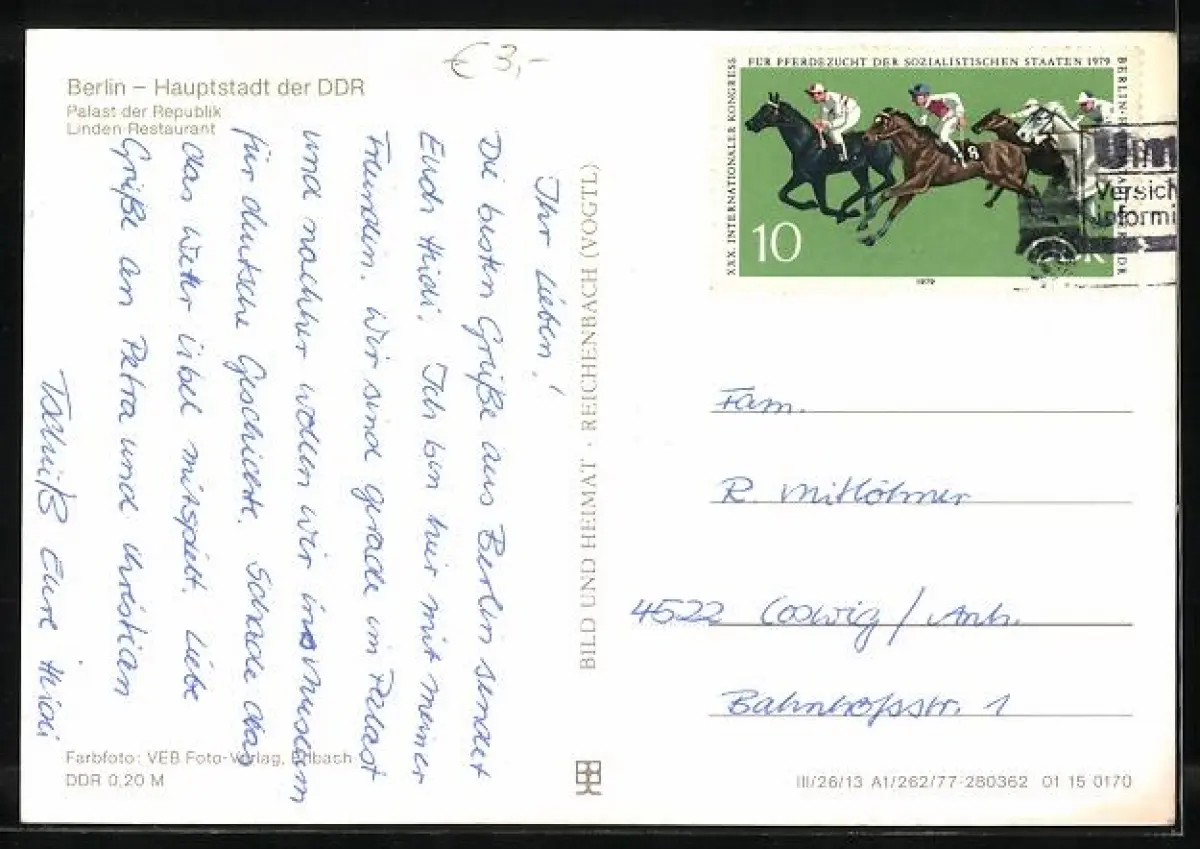 € 3,-
Berlin – Hauptstadt der DDR
Palast der Republik
Linden-Restaurant
Ihr Lieben!
Die besten Grüße aus Berlin sendet
Euch Heidi. Ich bin hier mit meiner
Freundin. Wir sind gerade im Palast
und nachher wollen wir ins Museum
für deutsche Geschichte. Schade das
das Wetter übel mitspielt. Liebe
Grüße an Petra und Christian
Tschüß Eure Heidi
Farbfoto: VEB Foto-Verlag, Erlbach
DDR 0,20 M
BILD UND HEIMAT · REICHENBACH (VOGTL)
XXX. INTERNATIONALER KONGRESS
FÜR PFERDEZUCHT DER SOZIALISTISCHEN STAATEN 1979
8
10
DDR
1979
Versich
informi
Fam.
R. Mitlöhner
4522 Coswig / Anh.
Bahnhofsstr. 1
III/26/13 A1/262/77-280362 01 15 0170